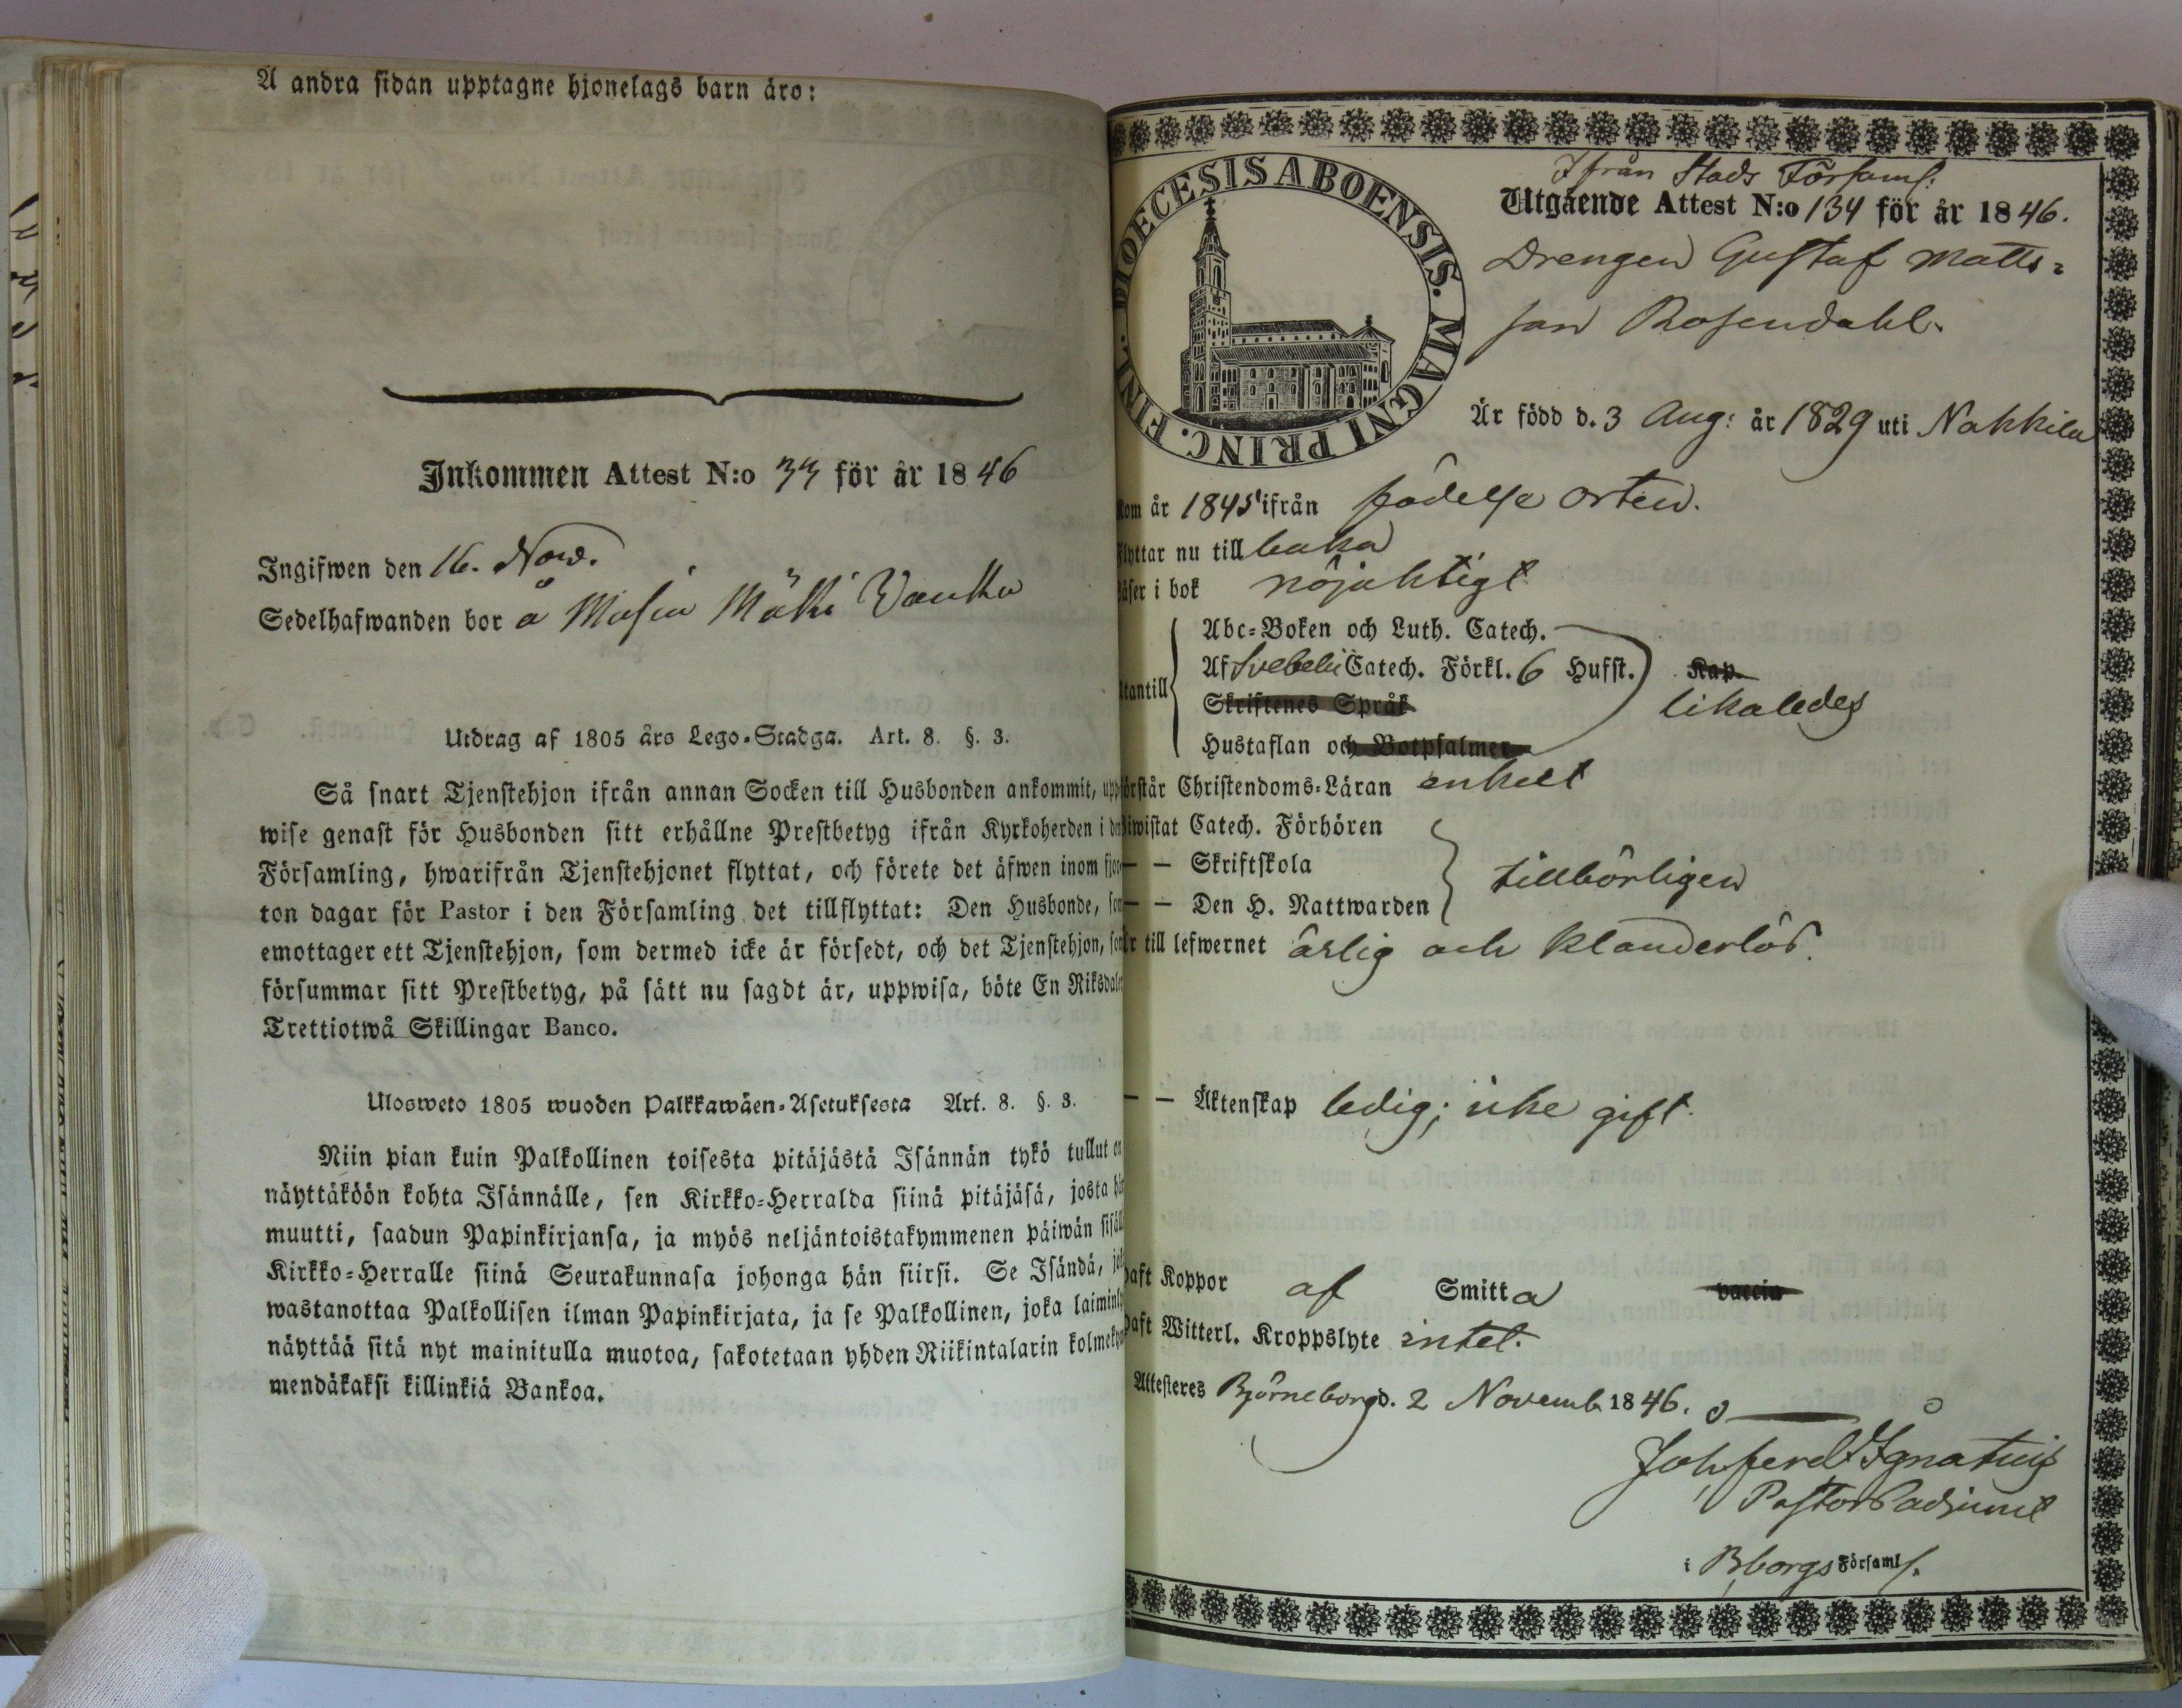 A andra sidan upptagne hjonelags barn äro:
Inkommen Attest N:o 33 för år 1846
Ingifwen den 16. Nov.
Sedelhafwanden bor å
Utdrag af 1805 års Lego-Stadga. Art. 8. §. 3.
Så snart Tjenstehjon ifrån annan Socken till Husbonden ankommit, upp
wise genast för Husbonden sitt erhållne Prestbetyg ifrån Kyrkoherden i den
Församling, hwarifrån Tjenstehjonet flyttat, och förete det äfwen inom fjor
ton dagar för Pastor i den Församling det tillflyttat: Den Husbonde, som
emottager ett Tjenstehjon, som dermed icke är försedt, och det Tjenstehjon, som
försummar sitt Prestbetyg, på sätt nu sagdt är, uppwisa, böte En Riksdaler
Trettiotwå Skillingar Banco.
Ulosweto 1805 wuoden Palkkawäen-Asetuksesta Art. 8. §. 3.
Niin pian kuin Palkollinen toisesta pitäjästä Isännän tykö tullut on
näyttäköön kohta Isännälle, sen Kirkko-Herralda siinä pitäjäsä, josta hän
muutti, saadun Papinkirjansa, ja myös neljäntoistakymmenen päiwän sisäll
Kirkko-Herralle siinä Seurakunnasa johonga hän siirsi. Se Isändä, jok
wastanottaa Palkollisen ilman Papinkirjata, ja se Palkollinen, joka laiminly
näyttää sitä nyt mainitulla muotoa, sakotetaan yhden Riikintalarin kolmeky
mendäkaksi killinkiä Bankoa.
DIOECESIS ABOENSIS. MAGNI PRINC. FINL.
Ifrån Stads Församl:
Utgående Attest N:o 134 för år 1846.
Drengen Gustaf Matts-
son Rosendahl.
Är född d. 3 Aug: år 1829 uti Nakkila
Kom år 1845 ifrån födelse orten.
Flyttar nu till baka
Läser i bok nöjaktigt
Abc-Boken och Luth. Catech.
Af Svebelii Catech. Förkl. 6 Hufst. Kap.
Utantill Skriftenes Språk likaledes
Hustaflan och Botpsalmer
Förstår Christendoms-Läran enkelt
Biwistat Catech. Förhören
— — Skriftskola tillbörligen
— — Den H. Nattwarden
Är till lefwernet ärlig och klanderlös.
— — Äktenskap ledig; icke gift.
Haft Koppor af Smitta vaccin
Haft Witterl. Kroppslyte intet.
Attesteres Björneborg d. 2 Novemb. 1846.
Joh. Ferd. Ignatius
Pastors adjunct
i Bborgs Församl.